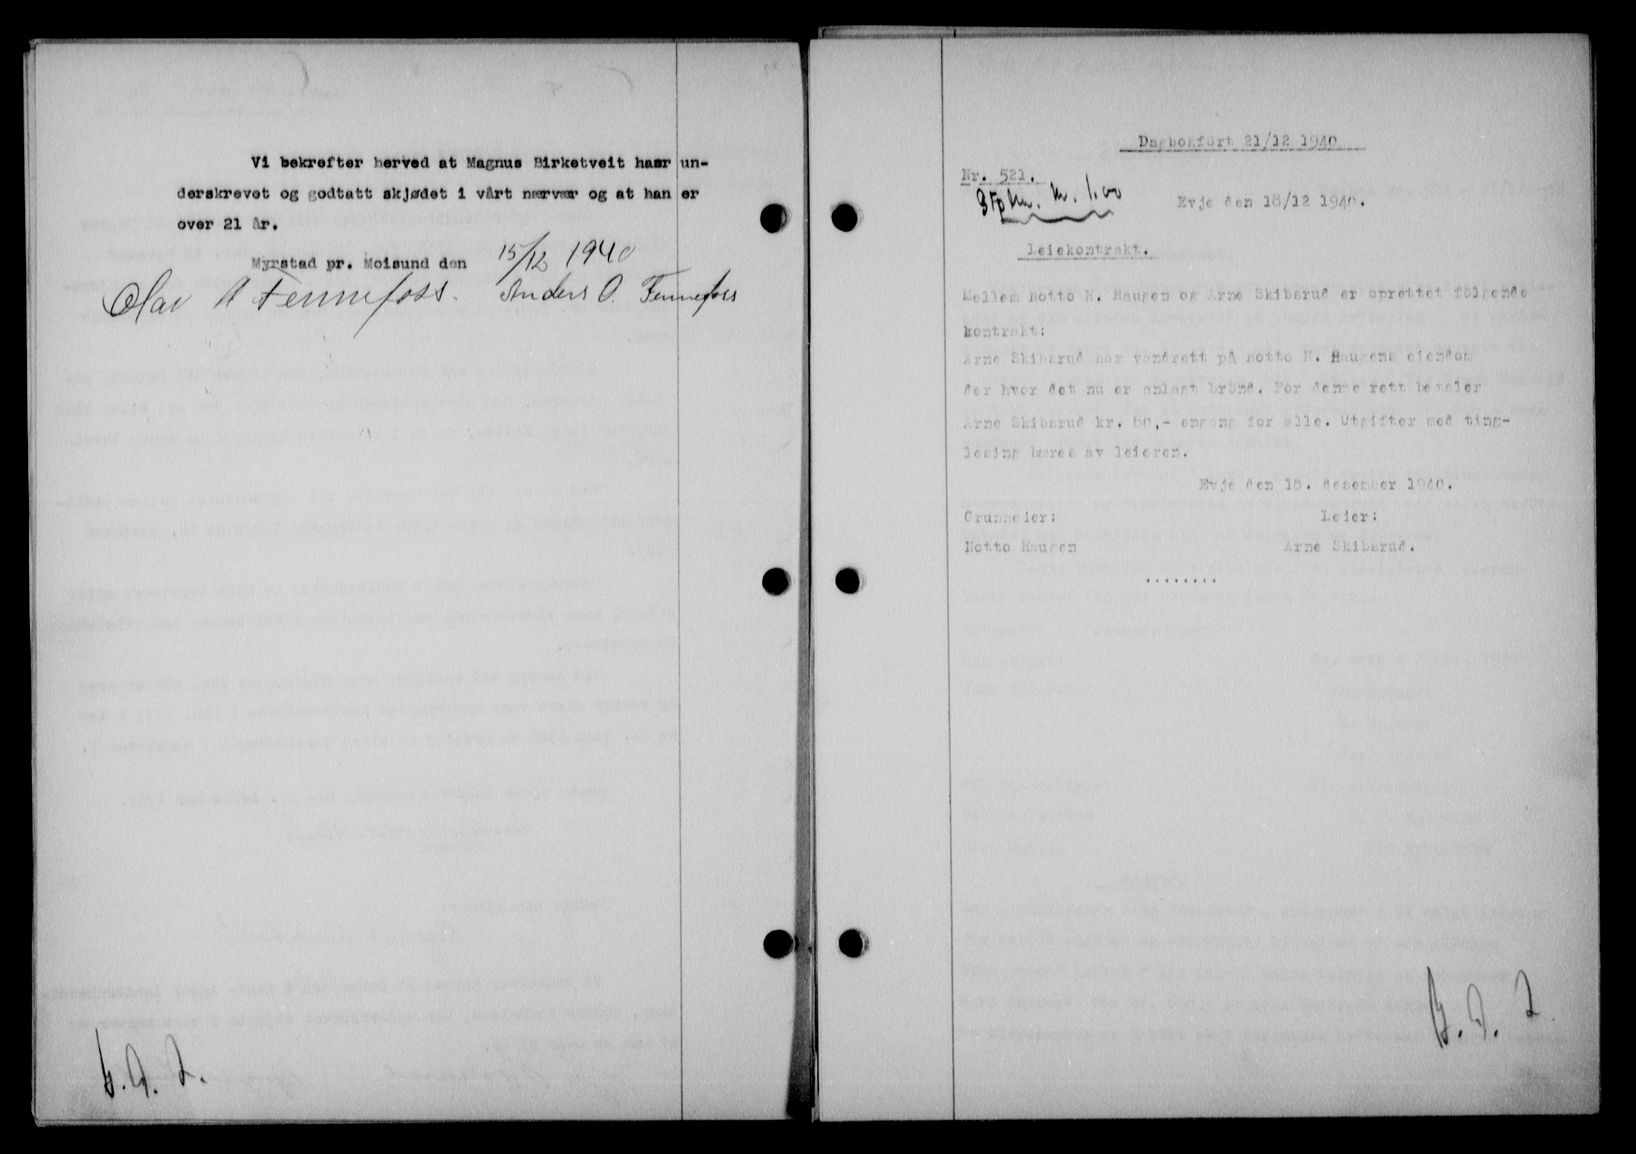 Vi bekrefter herved at Magnus Birketveit haar un-
derskrevet og godtatt skjødet i vårt nærvær og at han er
over 21 år.
Myrstad pr. Moisund den 15/12 1940
Olav A Fennefoss. Anders O. Fennefoss
Dagbokført 21/12 1940
Nr. 521.
kr. 1.00
Evje den 18/12 1940.
Leiekontrakt.
Mellem Notto H. Haugen og Arne Skibsrud er oprettet följende
kontrakt:
Arne Skibsrud har vandrett på Notto H. Haugens eiendom
der hvor det nu er anlagt brönd. For denne rett betaler
Arne Skibsrud kr. 60,- engang for alle. Utgifter med ting-
lesing bæres av leieren.
Evje den 18. desember 1940.
Grunneier: Leier:
Notto Haugen Arne Skibsrud.
........